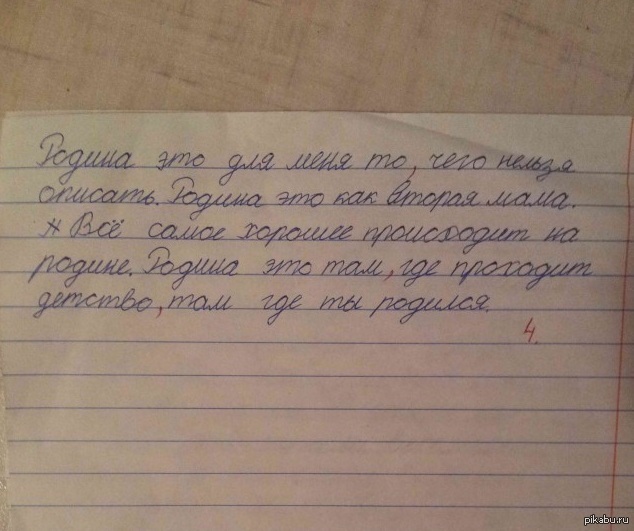 Родина это для меня то, чего нельзя
описать. Родина это как вторая мама.
Всё самое хорошее происходит на
родине. Родина это там, где проходит
детство, там где ты родился.
4.
pikabu.ru